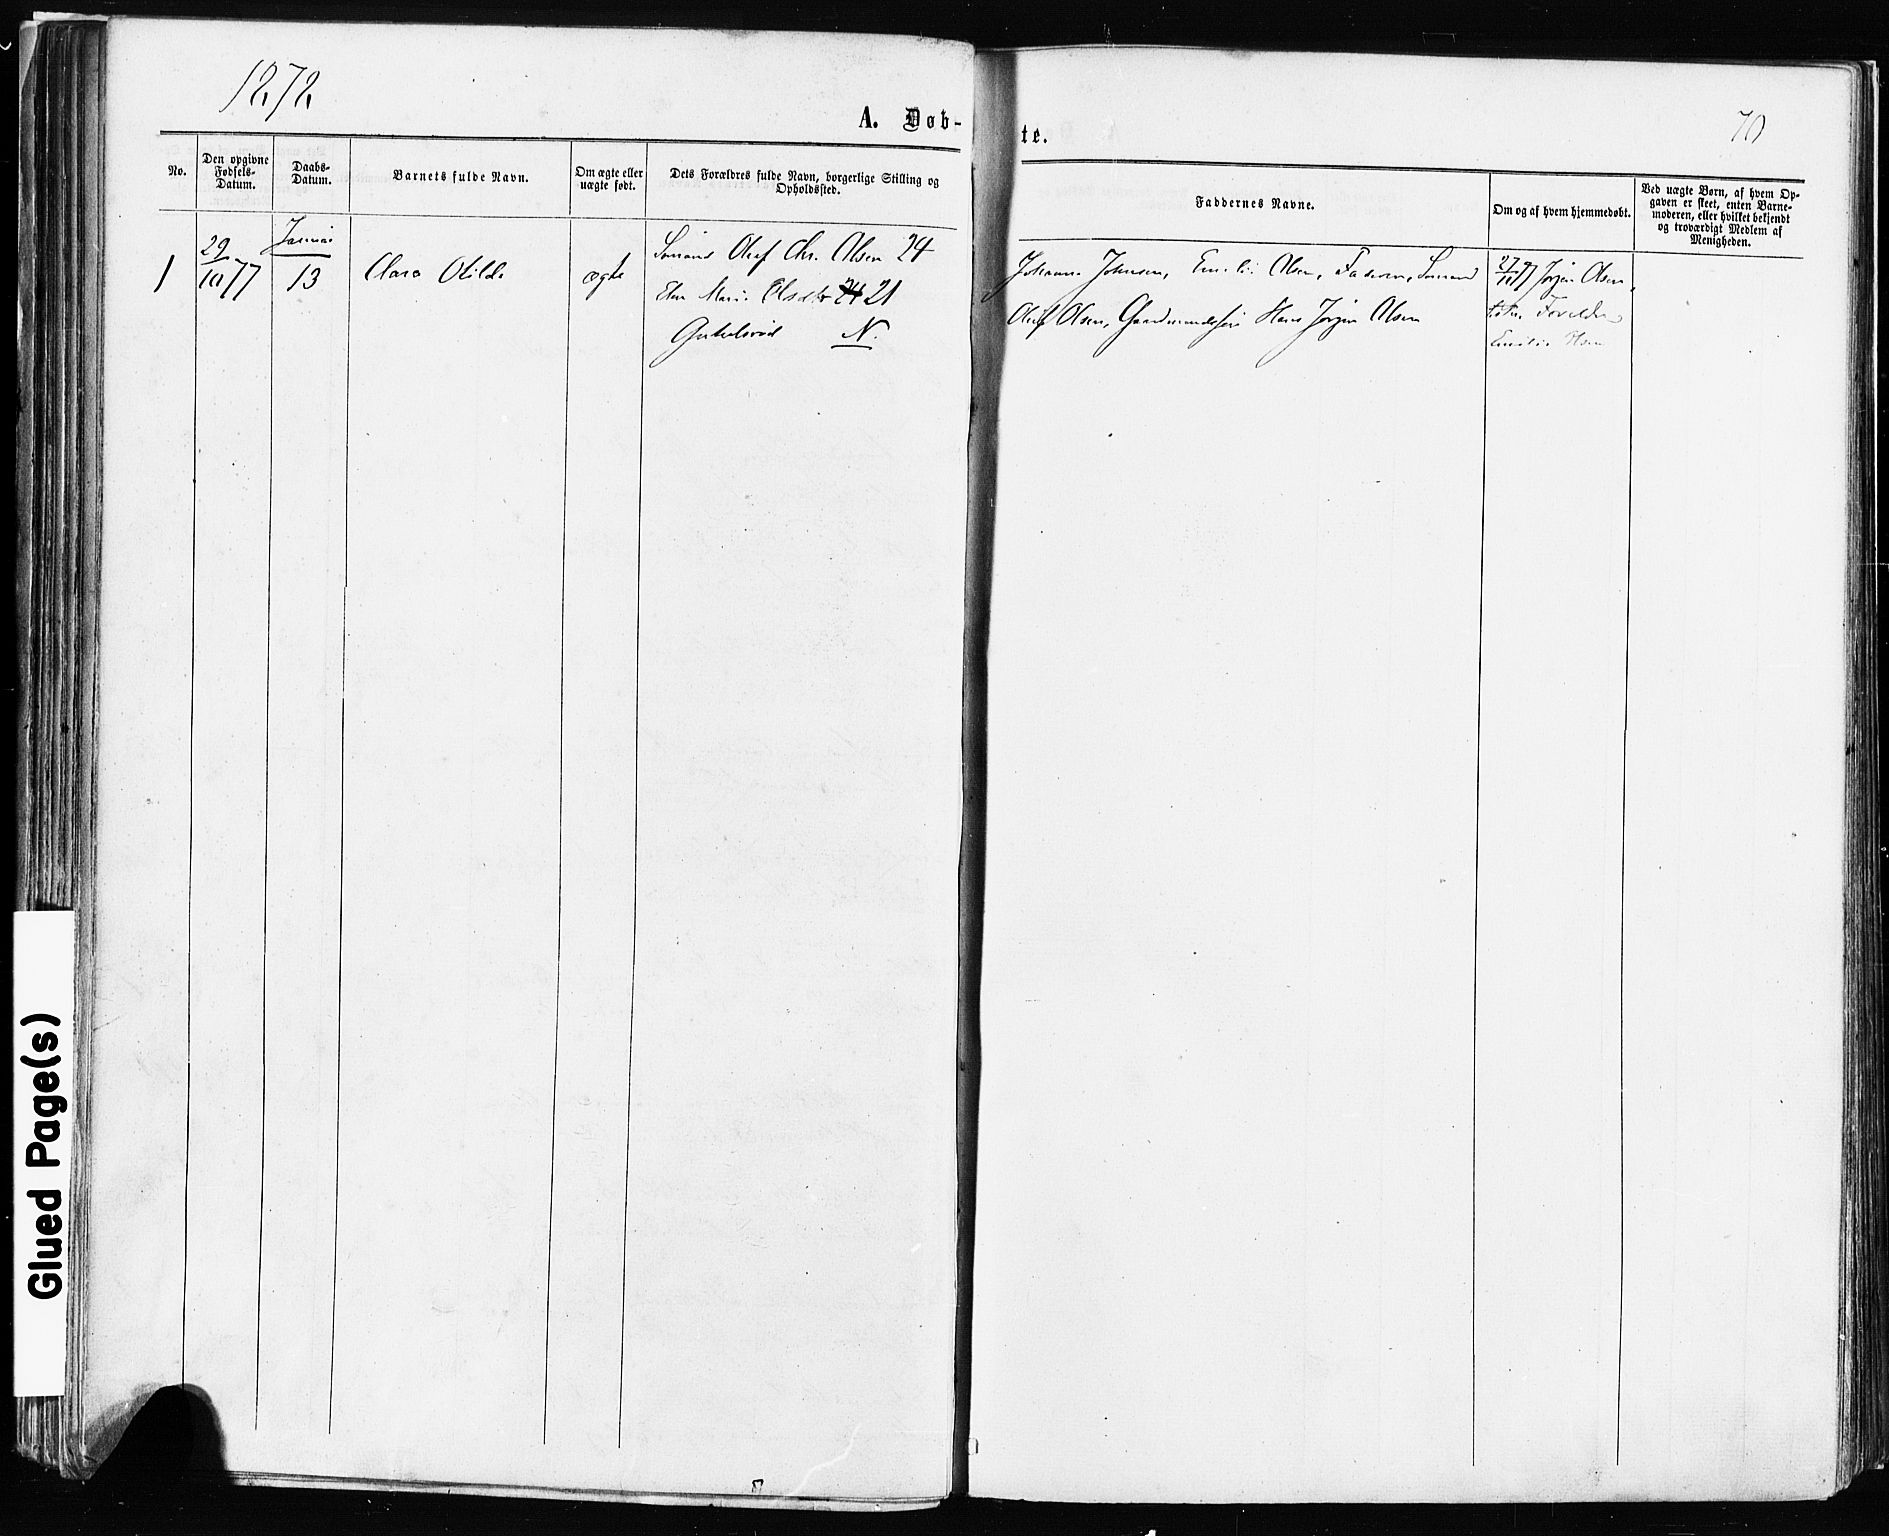 1878.
A. Døb-
No.
Den opgivne Fødsels-Datum.
Daabs-Datum.
Barnets fulde Navn.
Om ægte eller uægte født.
Dets Forældres fulde Navn, borgerlige Stilling og Opholdssted.
1
29/10 77
Januar
13
Clara Otilde
ægte
Sømand Oluf Chr. Olsen 24
Marie Olsdtr 24 21
N.
te.
70
Faddernes Navne.
Om og af hvem hjemmedøbt.
Ved uægte Børn, af hvem Op-
gaven er skeet, enten Barne-
moderen, eller hvilket bekjendt
og troværdigt Medlem af
Menigheden.
Johanne Johnsen, Emilie Olsen, Faderen, Sømand
Oluf Olsen, Gaardmandssøn Hans Jørgen Olsen
77 Jørgen Olsen,
Forældre
Emilie Olsen
Glued Page(s)